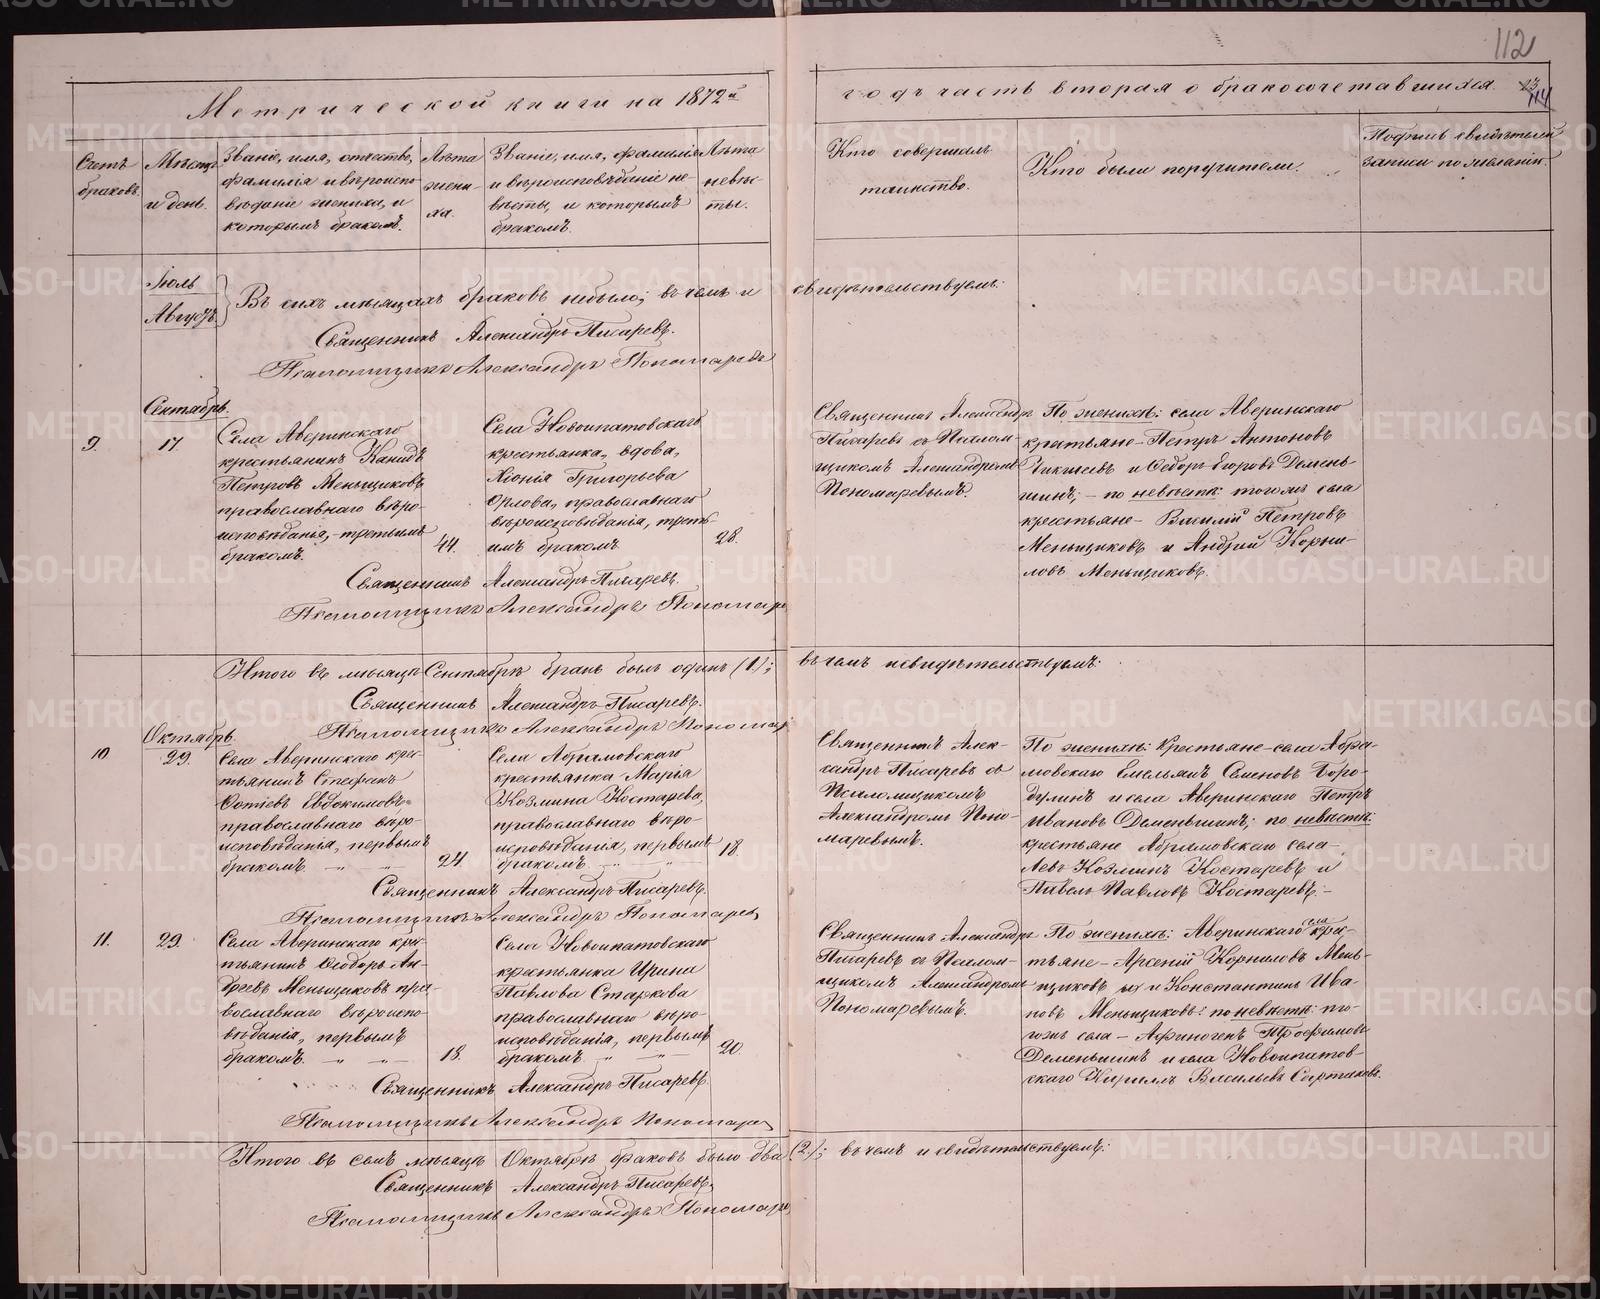 112
Метрической книги на 1872й
годъ часть вторая о бракосочетавшихся.
114
Счетъ браковъ.
Мѣсяцъ и день.
Званіе, имя, отчество,
фамилія и вѣроиспо-
вѣданіе жениха, и
которымъ бракомъ.
Лѣта
жени-
ха.
Званіе, имя, фамилія
и вѣроисповѣданіе не-
вѣсты, и которымъ
бракомъ.
Лѣта
невѣс-
ты.
Кто совершалъ
таинство.
Кто были поручители.
Подпись свидѣтелей
записи по желанію.
Іюль
Августъ.
Въ сихъ мѣсяцахъ браковъ небыло; въ чемъ и свидѣтельствуемъ:
Священникъ Александръ Писаревъ.
Псаломщикъ Александръ Пономаревъ
Сентябрь.
9.
17.
Села Аверинскаго
крестьянинъ
Петровъ Меньщиковъ
православнаго вѣро-
исповѣданія, третьимъ
бракомъ.
44.
Села Новоипатовскаго
крестьянка, вдова,
Хіонія Григорьева
Орлова, православнаго
вѣроисповѣданія, треть-
имъ бракомъ
28.
Священникъ Александръ
Писаревъ съ Псалом-
щикомъ Александромъ
Пономаревымъ.
По женихѣ: села Аверинскаго
крестьяне – Петръ Антоновъ
Чикишевъ и Ѳедоръ Егоровъ Демень-
шинъ; – по невѣстѣ того же села
крестьяне – Василій Петровъ
Меньщиковъ и Андрей Корни-
ловъ Меньщиковъ.
Священникъ Александръ Писаревъ.
Псаломщикъ Александръ Пономар
Итого въ мѣсяцѣ Сентябрѣ бракъ былъ одинъ (1); въ чемъ и свидѣтельствуемъ:
Священникъ Александръ Писаревъ.
Псаломщикъ Александръ Пономар
Октябрь.
10
29.
Села Аверинскаго крес-
тьянинъ Стефанъ
Фотіевъ Евдокимовъ
православнаго вѣро-
исповѣданія, первымъ
бракомъ. — „ —
24.
Села Абрамовскаго
крестьянка Марія
Козмина Костарева,
православнаго вѣро-
исповѣданія, первымъ
бракомъ. — „ —
18.
Священникъ Алек-
сандръ Писаревъ съ
Псаломщикомъ
Александромъ Поно-
маревымъ.
По женихѣ: Крестьяне – села Абра-
мовскаго Емельянъ Семеновъ Боро-
дулинъ и села Аверинскаго Петръ
Ивановъ Деменьшинъ; по невѣстѣ:
крестьяне Абрамовскаго села –
Левъ Козминъ Костаревъ и
Павелъ Павловъ Костаревъ; –
Священникъ Александръ Писаревъ.
Псаломщикъ Александръ Пономарев
11.
29.
Села Аверинскаго крес-
тьянинъ Ѳеодоръ Ан-
дреевъ Меньщиковъ пра-
вославнаго вѣроиспо-
вѣданія, первымъ
бракомъ. — „ —
18.
Села Новоипатовскаго
крестьянка Ирина
Павлова Старкова
православнаго вѣро-
исповѣданія, первымъ
бракомъ — „ —
20.
Священникъ Александръ
Писаревъ съ Псалом-
щикомъ Александромъ
Пономаревымъ.
По женихѣ: Аверинскаго села крес-
тьяне – Арсеній Корниловъ Мень-
щиковъ и Константинъ Ива-
новъ Меньщиковъ: по невѣстѣ: то-
гожъ села – Афиногенъ Трофимовъ
Деменьшинъ и села Новоипатов-
скаго Кириллъ Васильевъ
Священникъ Александръ Писаревъ.
Псаломщикъ Александръ Пономарев
Итого въ семъ мѣсяцѣ Октябрѣ браковъ было два (2); въ чемъ и свидѣтельствуемъ:
Священникъ Александръ Писаревъ.
Псаломщикъ Александръ Пономар
METRIKI.GASO-URAL.RU